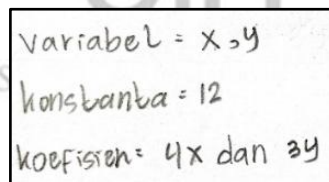 Variabel = x, y
konstanta = 12
koefisien = 4x dan 3y